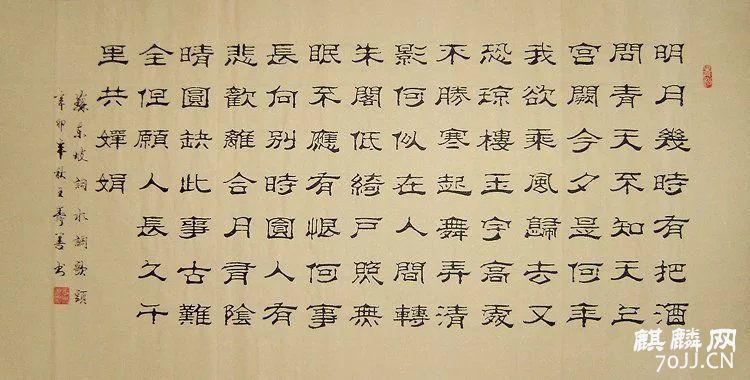 明月幾時有把酒
問青天不知天上
宮闕今夕是何年
我欲乘風歸去又
恐琼樓玉宇高處
不勝寒起舞弄清
影何似在人間轉
朱閣低綺戶照無
眠不應有恨何事
長向別時圓人有
悲歡離合月有陰
晴圓缺此事古難
全但願人長久千
里共嬋娟
蘇東坡詞水調歌頭
辛卯年秋王善书
麒麟网
70JJ.CN